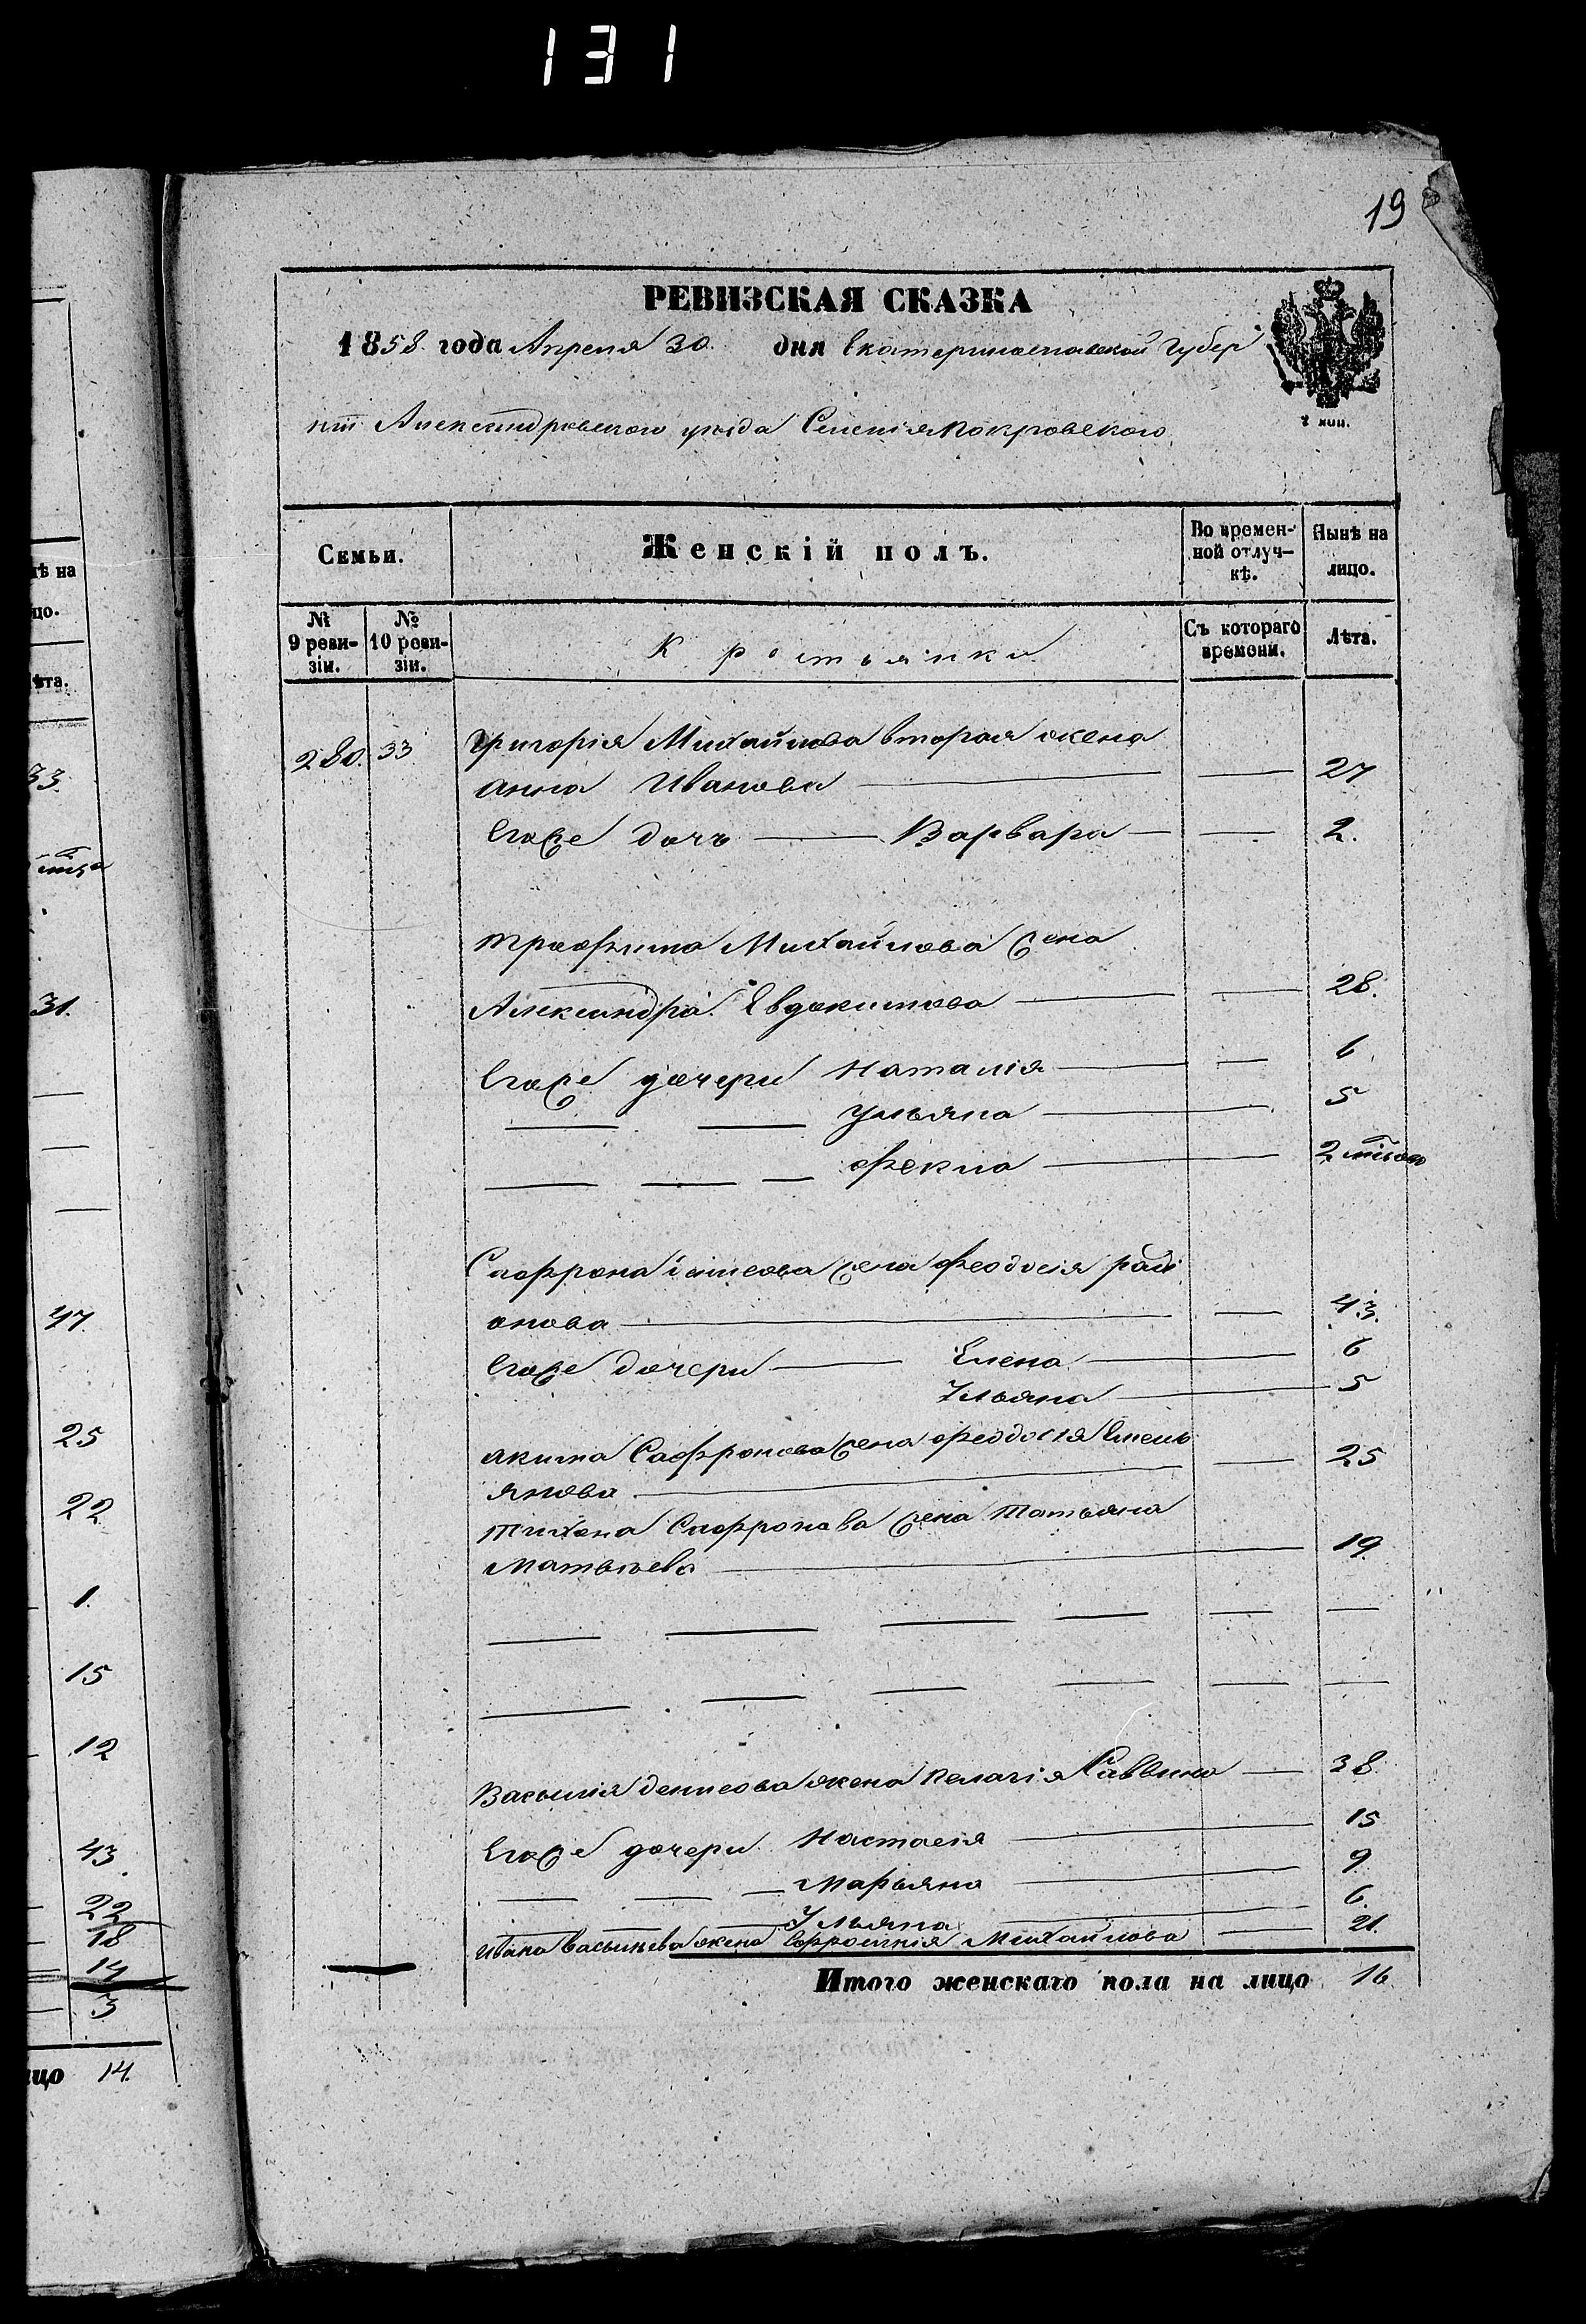 131
19
РЕВИЗСКАЯ СКАЗКА
1858 года Апреля 30. дня Екатеринославской Губер
нiи Александровскаго уѣзда Селенiя Покровскаго.
2 коп.
Семьи. Женскій полъ. Во времен-ной отлуч-кѣ. Нынѣ на лицо.
№ 9 реви-зіи. № 10 реви-зіи. Крестьянки Съ котораго времени. Лѣта.
280. 33 Григорія Михайлова вторая жена
Анна Иванова 27
Егоже дочь Варвара 2.
Трофима Михайлова жена
Александра Евдокимова 28.
Егоже дочери Наталія 6
Ульяна 5
Фекла 2
Сафрона жена Феодосія Радi
онова 43.
Егоже дочери Елена 6
Ульяна 5
Акима Сафронова жена Феодосія Емель 25
янова
Тихона Сафронова жена Татьяна
Матвѣева 19
Василія Денисова жена Пелагія Саввина 38
Егоже дочери Настасія 15
Марьяна 9
Ульяна 6.
Ивана Васильева жена Ефросинія Михайлова 21.
Итого женскаго пола на лицо 16
тѣ на
цо.
ѣта.
33.
31.
47
25
22
1.
15
12
43
22
18
14
3
цо 14.